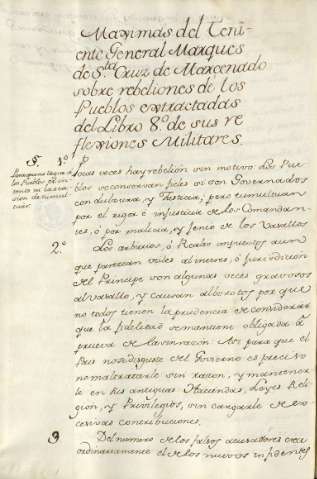 Maximas del Teni-
ente General Marques
de Sta. Cruz de Marcenado
sobre rebeliones de los
Pueblos extractadas
del Libro 8º de sus re
flexiones Militares.
§. 1º
Pocas veces hay rebelion sin motivo: Los Pue
blos se conservan fieles si son Governados
con dulzura, y Justicia; pero se tumultuan
por el rigor, ó injusticia de los Comandan
tes, ó por malicia, y genio de los Vasallos
2º
Los arbitrios, ó Reales impuestos aun
que parezcan utiles al interes, ó jurisdicion
del Principe son algunas veces gravosos
al vasallo, y causan alborotos por que
no todos tienen la prudencia de considerar
que la fidelidad se mantiene obligada á
prueva de la sinrazon. Asi para que el
Pais no se disguste del Govierno es preciso
no maltratarle sin razon, y mantener
le en sus antiguas Haciendas, Leyes Reli
gion, y Privilegios, sin cargarle de ex
cesivas contribuciones.
3
Del numero de los falsos acusadores crea
ordinariamente el de los nuevos infidentes